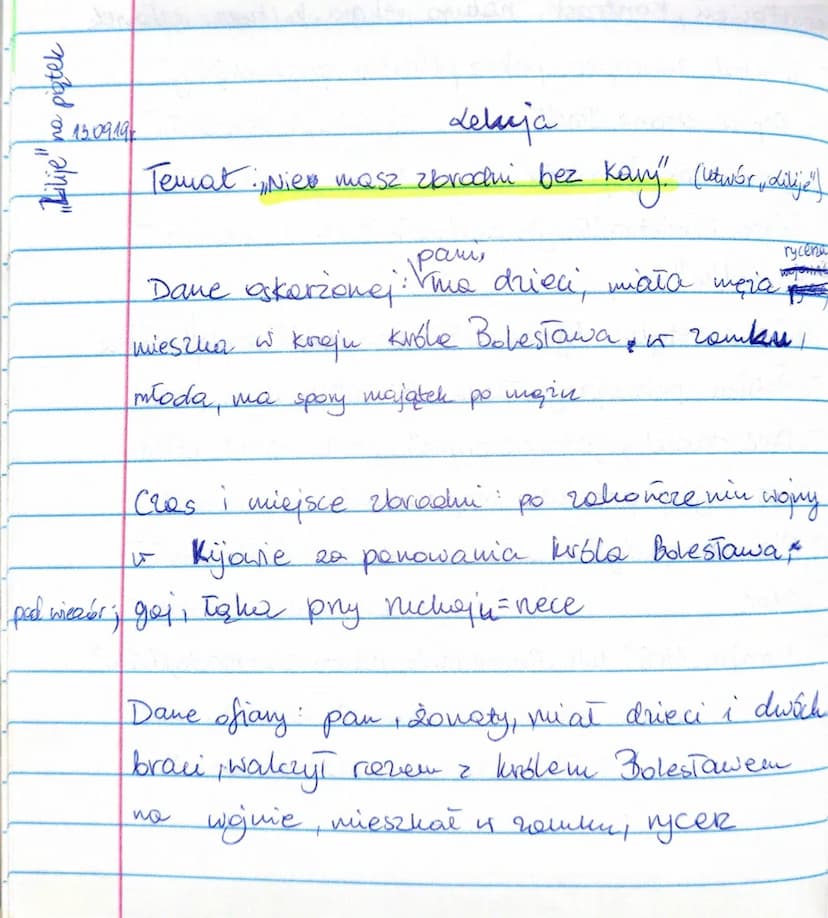 "Lilije" na piątek
13.09.19r.
Lekcja
Temat: „Nie masz zbrodni bez kary." (utwór „Lilije")
pani, rycerza
Dane oskarżonej: ma dzieci, miała męża
mieszka w kraju króla Bolesława, w zamku,
młoda, ma spory majątek po mężu
Czas i miejsce zbrodni: po zakończeniu wojny
w Kijowie za panowania króla Bolesława,
pod wieczór; gaj, łąka przy ruchaju=rzece
Dane ofiary: pan, żonaty, miał dzieci i dwóch
braci, walczył razem z królem Bolesławem
na wojnie, mieszkał w zamku, rycerz